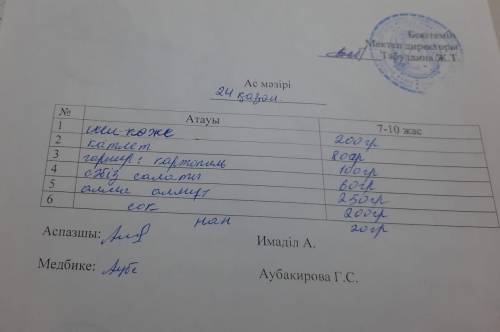 Бекітемін
Мектеп директоры
Табулдина Ж.Т.
Ас мәзірі
24 қазан
№ Атауы 7-10 жас
1 көже 200гр
2 котлет 80гр
3 гарнир: картопель 100гр
4 сәбіз салаты 60гр
5 алма алмұрт 250гр
6 сок 200гр
нан 20гр
Аспазшы: Имаділ А.
Медбике: Аубакирова Г.С.